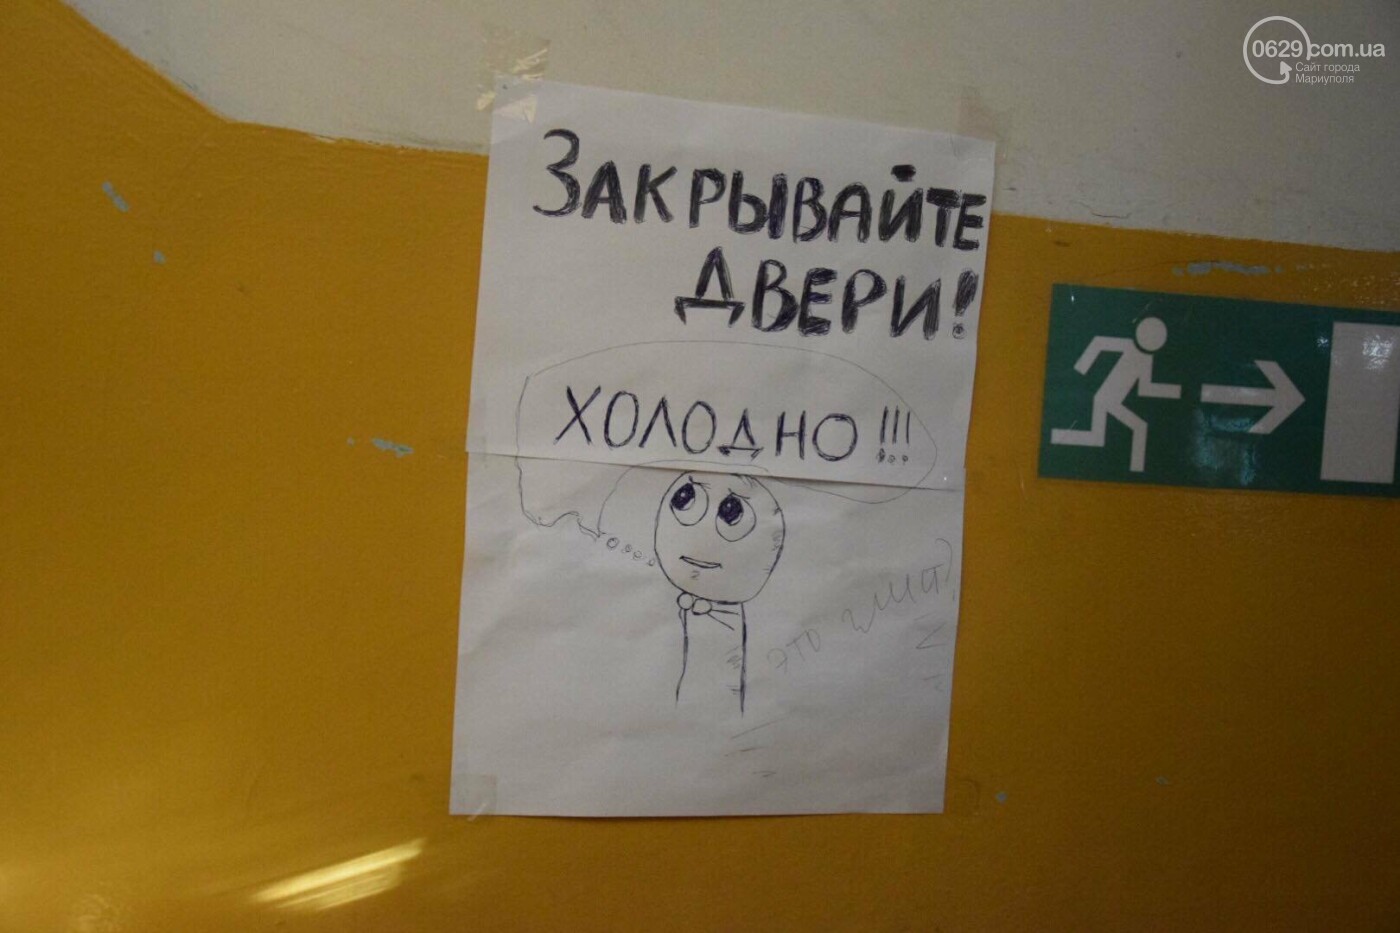 0629.com.ua
Сайт города
Мариуполя
ЗАКРЫВАЙТЕ
ДВЕРИ!
ХОЛОДНО!!!
ЭТО